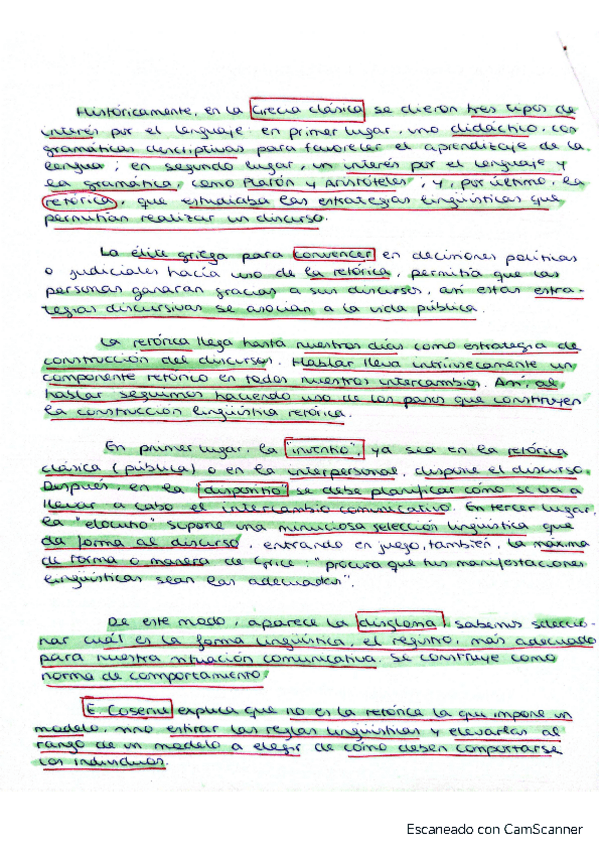 Históricamente, en la Grecia clásica se dieron tres tipos de
interés por el lenguaje: en primer lugar, uno didáctico, con
gramáticas descriptivas para favorecer el aprendizaje de la
lengua; en segundo lugar, un interés por el lenguaje y
la gramática, como Platón y Aristóteles; y, por último, la
retórica, que estudiaba las estrategias lingüísticas que
permitían realizar un discurso.
La élite griega para convencer en decisiones políticas
o judiciales hacía uso de la retórica, permitía que las
personas ganaran gracias a sus discursos, así estas estra-
tegias discursivas se asocian a la vida pública.
La retórica llega hasta nuestros días como estrategia de
construcción del discursos. Hablar lleva intrínsecamente un
componente retórico en todos nuestros intercambios. Así, al
hablar seguimos haciendo uso de los pasos que construyen
la construcción lingüística retórica.
En primer lugar, la "inventio", ya sea en la retórica
clásica (pública) o en la interpersonal, dispone el discurso.
Después, en la "dispositio" se debe planificar cómo se va a
llevar a cabo el intercambio comunicativo. En tercer lugar,
la "elocutio" supone una minuciosa selección lingüística que
da forma al discurso, entrando en juego, también, la máxima
de forma o manera de Grice: "procura que tus manifestaciones
lingüísticas sean las adecuadas".
De este modo, aparece la disglosia, sabemos seleccio-
nar cuál es la forma lingüística, el registro, más adecuado
para nuestra situación comunicativa. Se construye como
norma de comportamiento.
E. Coseriu explica que no es la retórica la que impone un
modelo, sino estirar las reglas lingüísticas y elevarlas al
rango de un modelo a elegir de cómo deben comportarse
los individuos.
Escaneado con CamScanner